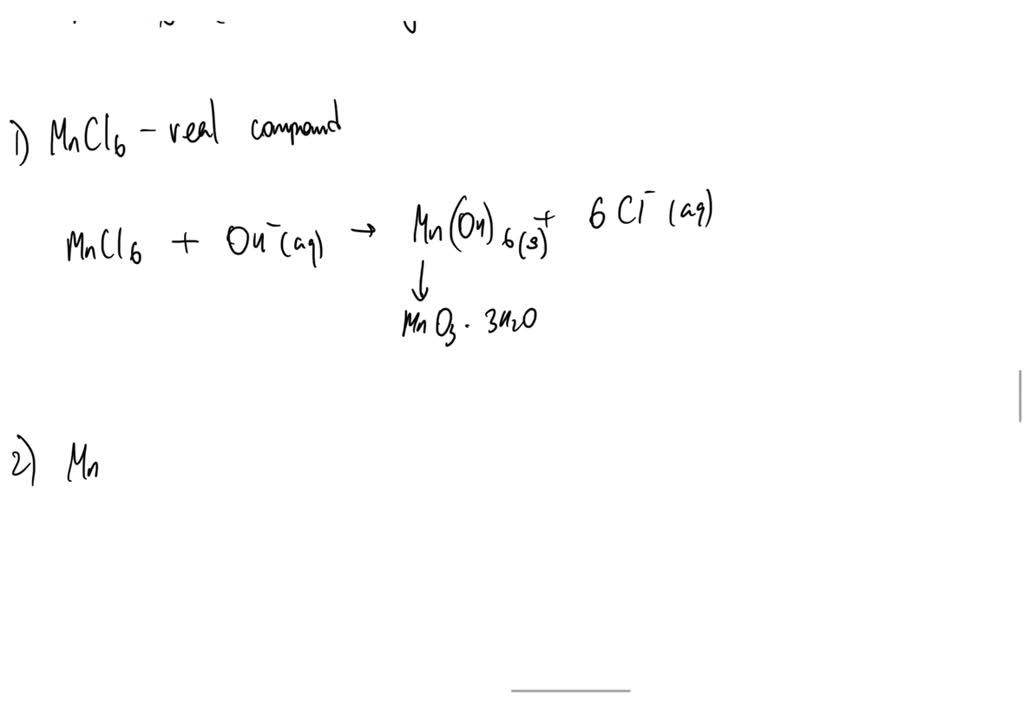 1) MnCl6 - real compound
MnCl6 + OH-(aq) → Mn(OH)6(s) + 6Cl-(aq)
↓
MnO3 · 3H2O
2) Mn